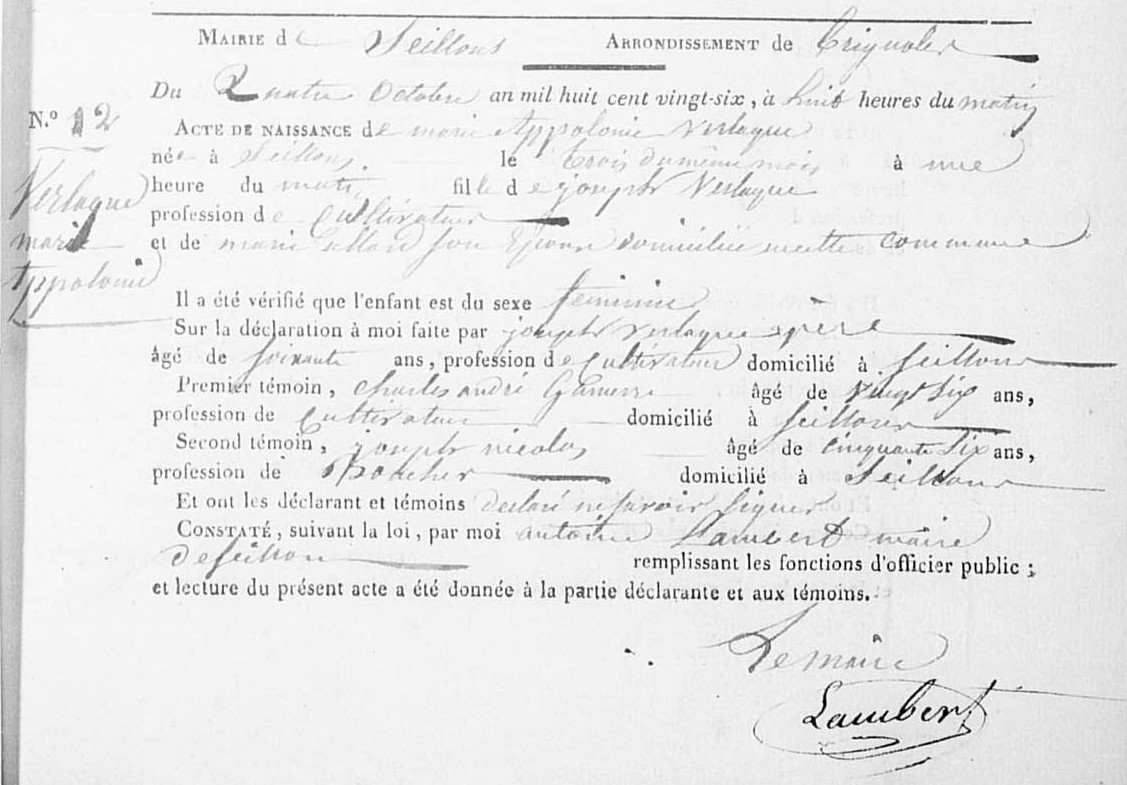 Mairie de Seillons Arrondissement de Brignoles
Du Quatre Octobre an mil huit cent vingt-six, à huit heures du matin
N.º 12
Acte de naissance de marie Appolonie Verlaque
née à Seillons le trois du même mois à une
Verlaque
heure du matin fille de joseph Verlaque
marie
profession de Cultivateur
Appolonie
et de marie son Epouse domiciliée commune
Il a été vérifié que l'enfant est du sexe feminin
Sur la déclaration à moi faite par joseph Verlaque père
âgé de soixante ans, profession de Cultivateur domicilié à Seillons
Premier témoin, Charles andré âgé de vingt six ans,
profession de Cultivateur domicilié à Seillons
Second témoin, joseph nicolas âgé de cinquante six ans,
profession de domicilié à Seillons
Et ont les déclarant et témoins declaré ne savoir signer
Constaté, suivant la loi, par moi antoine Lambert maire
de seillon remplissant les fonctions d'officier public ;
et lecture du présent acte a été donnée à la partie déclarante et aux témoins.
Le maire
Lambert